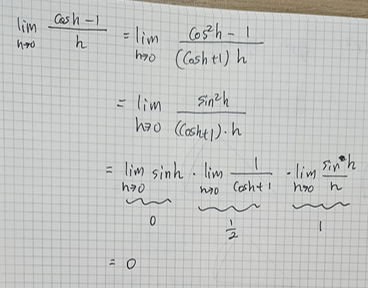 lim h→0 (cosh−1)/h = lim h→0 (cos²h − 1)/((cosh+1) h)
= lim h→0 sin²h/((cosh+1)·h)
= lim h→0 sinh · lim h→0 1/(cosh+1) · lim h→0 sinh/h
0 1/2 1
= 0